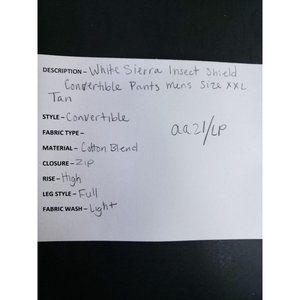 DESCRIPTION – White Sierra Insect Shield
Convertible Pants mens Size XXL
Tan
STYLE – Convertible
aa21/LP
FABRIC TYPE –
MATERIAL – Cotton Blend
CLOSURE – Zip
RISE – High
LEG STYLE – Full
FABRIC WASH – Light